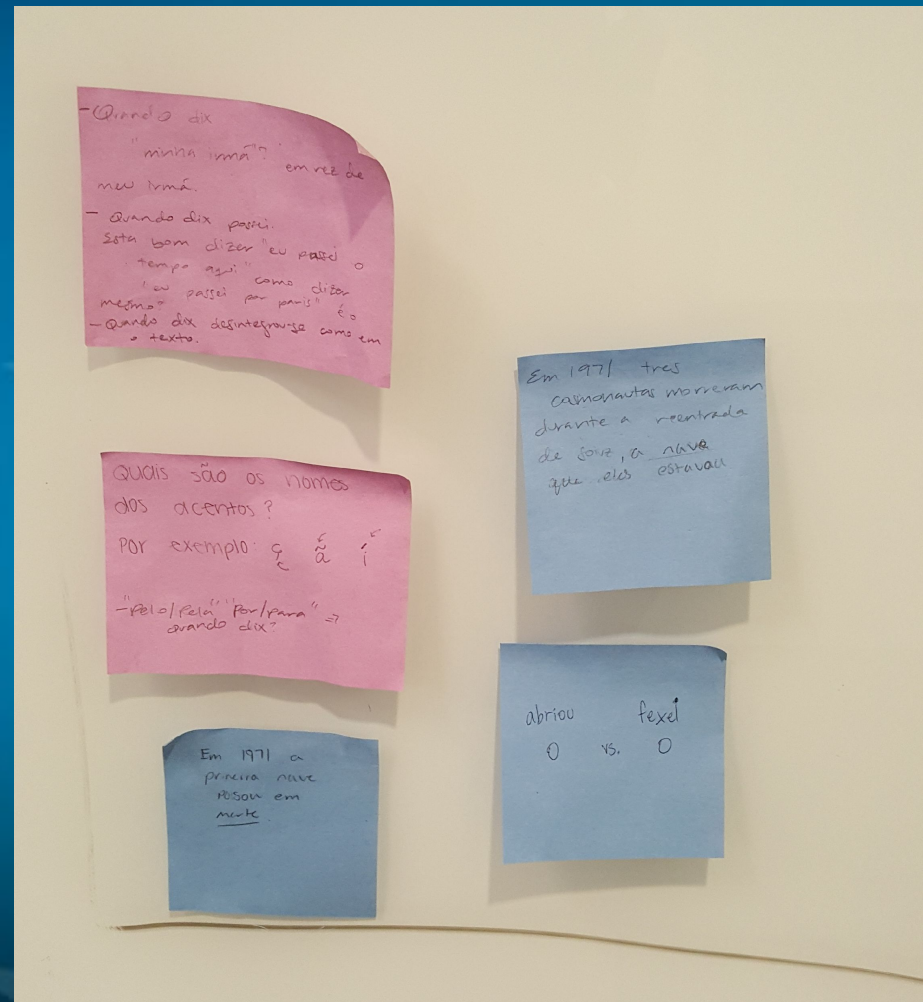 -Quando dix
"minha irmã"? em vez de
meu irmá.
- Quando dix passei.
Esta bom dizer "eu passei o
tempo aqui" como dizer
"eu passei por paris" é o
mesmo?
- Quando dix desintegrou-se como em
o texto.
Quais são os nomes
dos acentos?
Por exemplo: ç ã í
-"Pelo/Pela" "Por/para" =>
quando dix?
Em 1971 a
primeira nave
posou em
marte.
Em 1971 tres
cosmonautas morreram
durante a reentrada
de , a nave
que eles estavau
abriou fexei
O vs. O